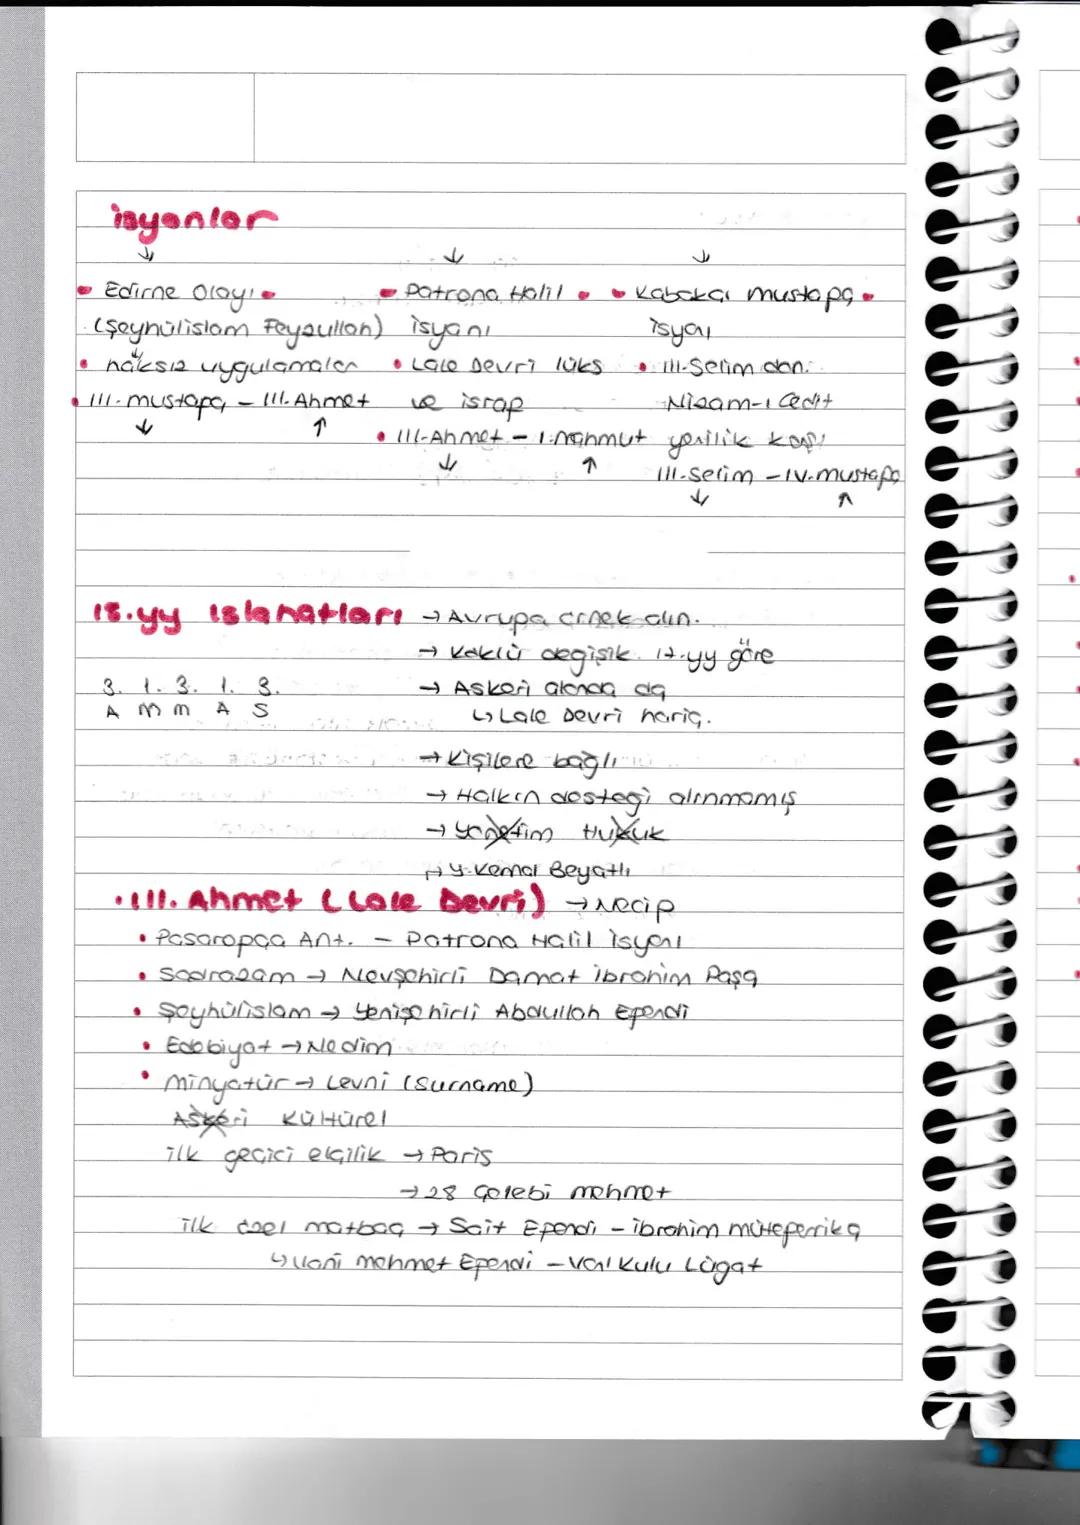 isyanlar
↓ ↓ ↓
• Edirne Olayı • • Patrona Halil • • Kabakçı Mustafa •
(Şeyhülislam Feyzullah) isyanı isyaı
↓
• haksız uygulamalar • Lale Devri lüks • III.Selim dön.
• III. mustafa – III. Ahmet ve israp Nizam-ı Cedit
↓ ↑ • III-Ahmet – I.Mahmut yenilik karşı
↓ ↑ III.Selim – IV.mustafa
↓ ↑
18.yy Islahatları → Avrupa örnek alın.
→ Köklü değişik. 17.yy göre
3. 1. 3. 1. 3. → Askeri alanda da
A M M A S ↳ Lale Devri hariç.
→ Kişilere bağlı
→ Halkın desteği alınmamış
→ Yönetim Hukuk
→ Y.Kemal Beyatlı
• III. Ahmet (Lale Devri) → Necip
• Pasaropça Ant. – Patrona Halil isyanı
• Sadrazam → Nevşehirli Damat İbrahim Paşa
• Şeyhülislam → Yenişehirli Abdullah Efendi
• Edebiyat → Nedim
• Minyatür → Levni (Surname)
Askeri Kültürel
ilk geçici elçilik → Paris
→ 28 Çelebi mehmet
ilk özel matbaa → Sait Efendi – ibrahim müteferrika
↳ Vani mehmet Efendi – Van Kulu Lügat